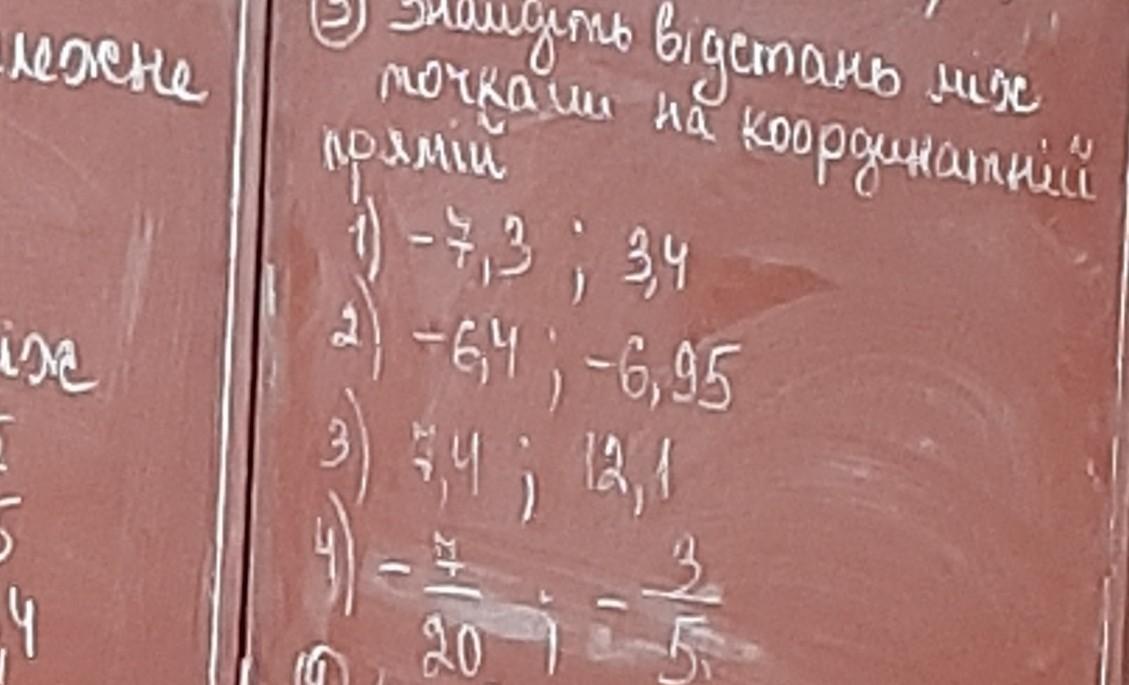 лежне
іж
5
4
③ Знайдіть відстань між
точками на координатній
прямій
1) -7,3 ; 3,4
2) -6,4 ; -6,95
3) 7,4 ; 12,1
4) - 7/20 ; - 3/5